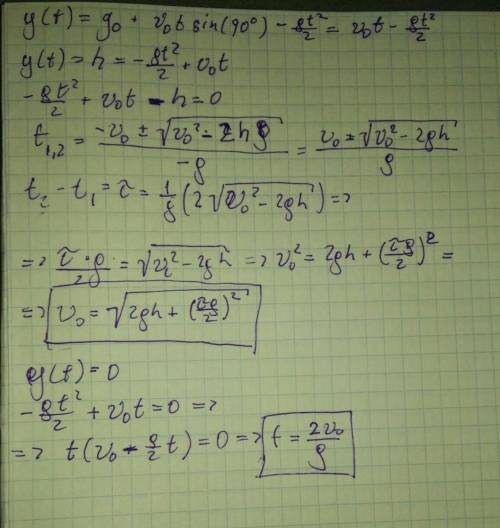 y(t) = y₀ + v₀t sin(90°) - gt²/2 = v₀t - gt²/2
y(t) = h = -gt²/2 + v₀t
-gt²/2 + v₀t - h = 0
t₁,₂ = (-v₀ ± √(v₀² - 2hg))/(-g) = (v₀ ± √(v₀² - 2gh))/g
t₂ - t₁ = τ = 1/g (2√(v₀² - 2gh)) =>
=> τ·g/2 = √(v₀² - 2gh) => v₀² = 2gh + (τg/2)² =
=> v₀ = √(2gh + (τg/2)²)
y(t) = 0
-gt²/2 + v₀t = 0 =>
=> t(v₀ - g/2 t) = 0 => t = 2v₀/g